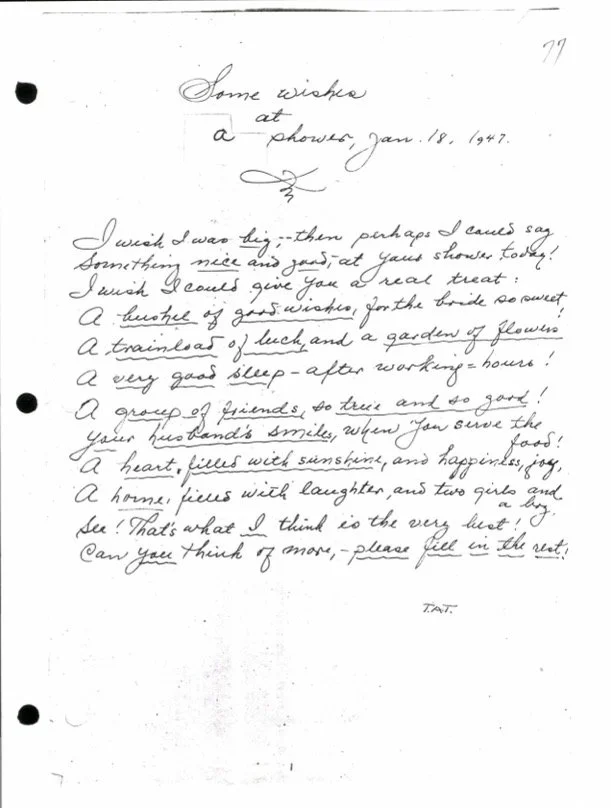 77
Some wishes
at
a shower, Jan. 18, 1947.
I wish I was big,--then perhaps I could say
Something nice and good,-at your shower today!
I wish I could give you a real treat:
A bushel of good wishes, for the bride so sweet!
A trainload of luck, and a garden of flowers
A very good sleep - after working=hours!
A group of friends, so true and so good!
Your husband's smiles, when you serve the
food!
A heart, filled with sunshine, and happiness, joy,
A home, filled with laughter, and two girls and
a boy.
See! That's what I think is the very best!
Can you think of more,-please fill in the rest!
T.A.T.